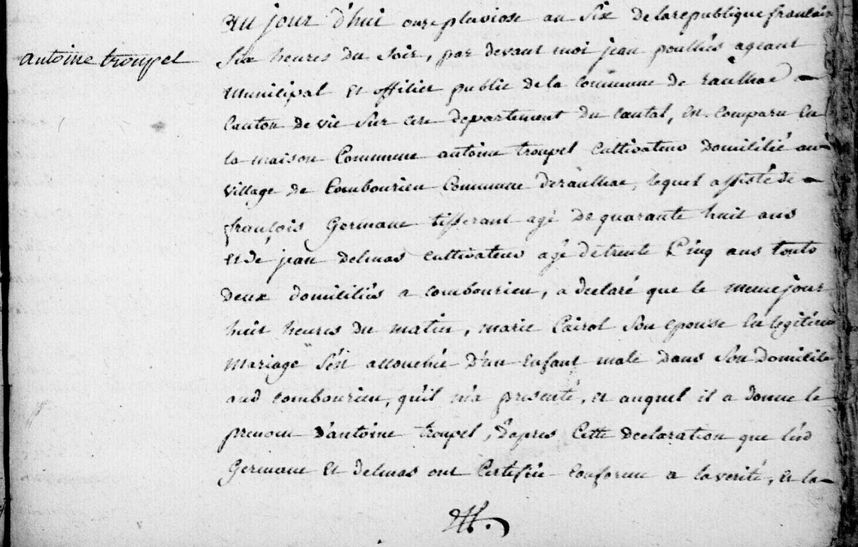 au jour d'hui onze pluviose an Six de la republique francaise
antoine troupel
Six heures du Soir, par devant moi jean poulhès ageant
Municipal et officier public de la Commune de raulhac
Canton de vic Sur cere departement du Cantal, est comparu en
la maison Commune antoine troupel Cultivateur domicilié au
village de Combourieu Commune de raulhac, lequel assisté de
françois Germane tisserant agé de quarante huit ans
et de jean delmas cultivateur agé de trente Cinq ans touts
deux domiciliés a combourieu, a declaré que le meme jour
huit heures du matin, marie Cairol Son epouse en legitime
Mariage S'est accouchée D'un Enfant male dans Son domicile
aud combourieu, qu'il m'a presenté, et auquel il a donné le
prenom d'antoine troupel, d'apres Cette declaration que lesd
Germane et delmas ont Certifiée conforme a la verité, et la